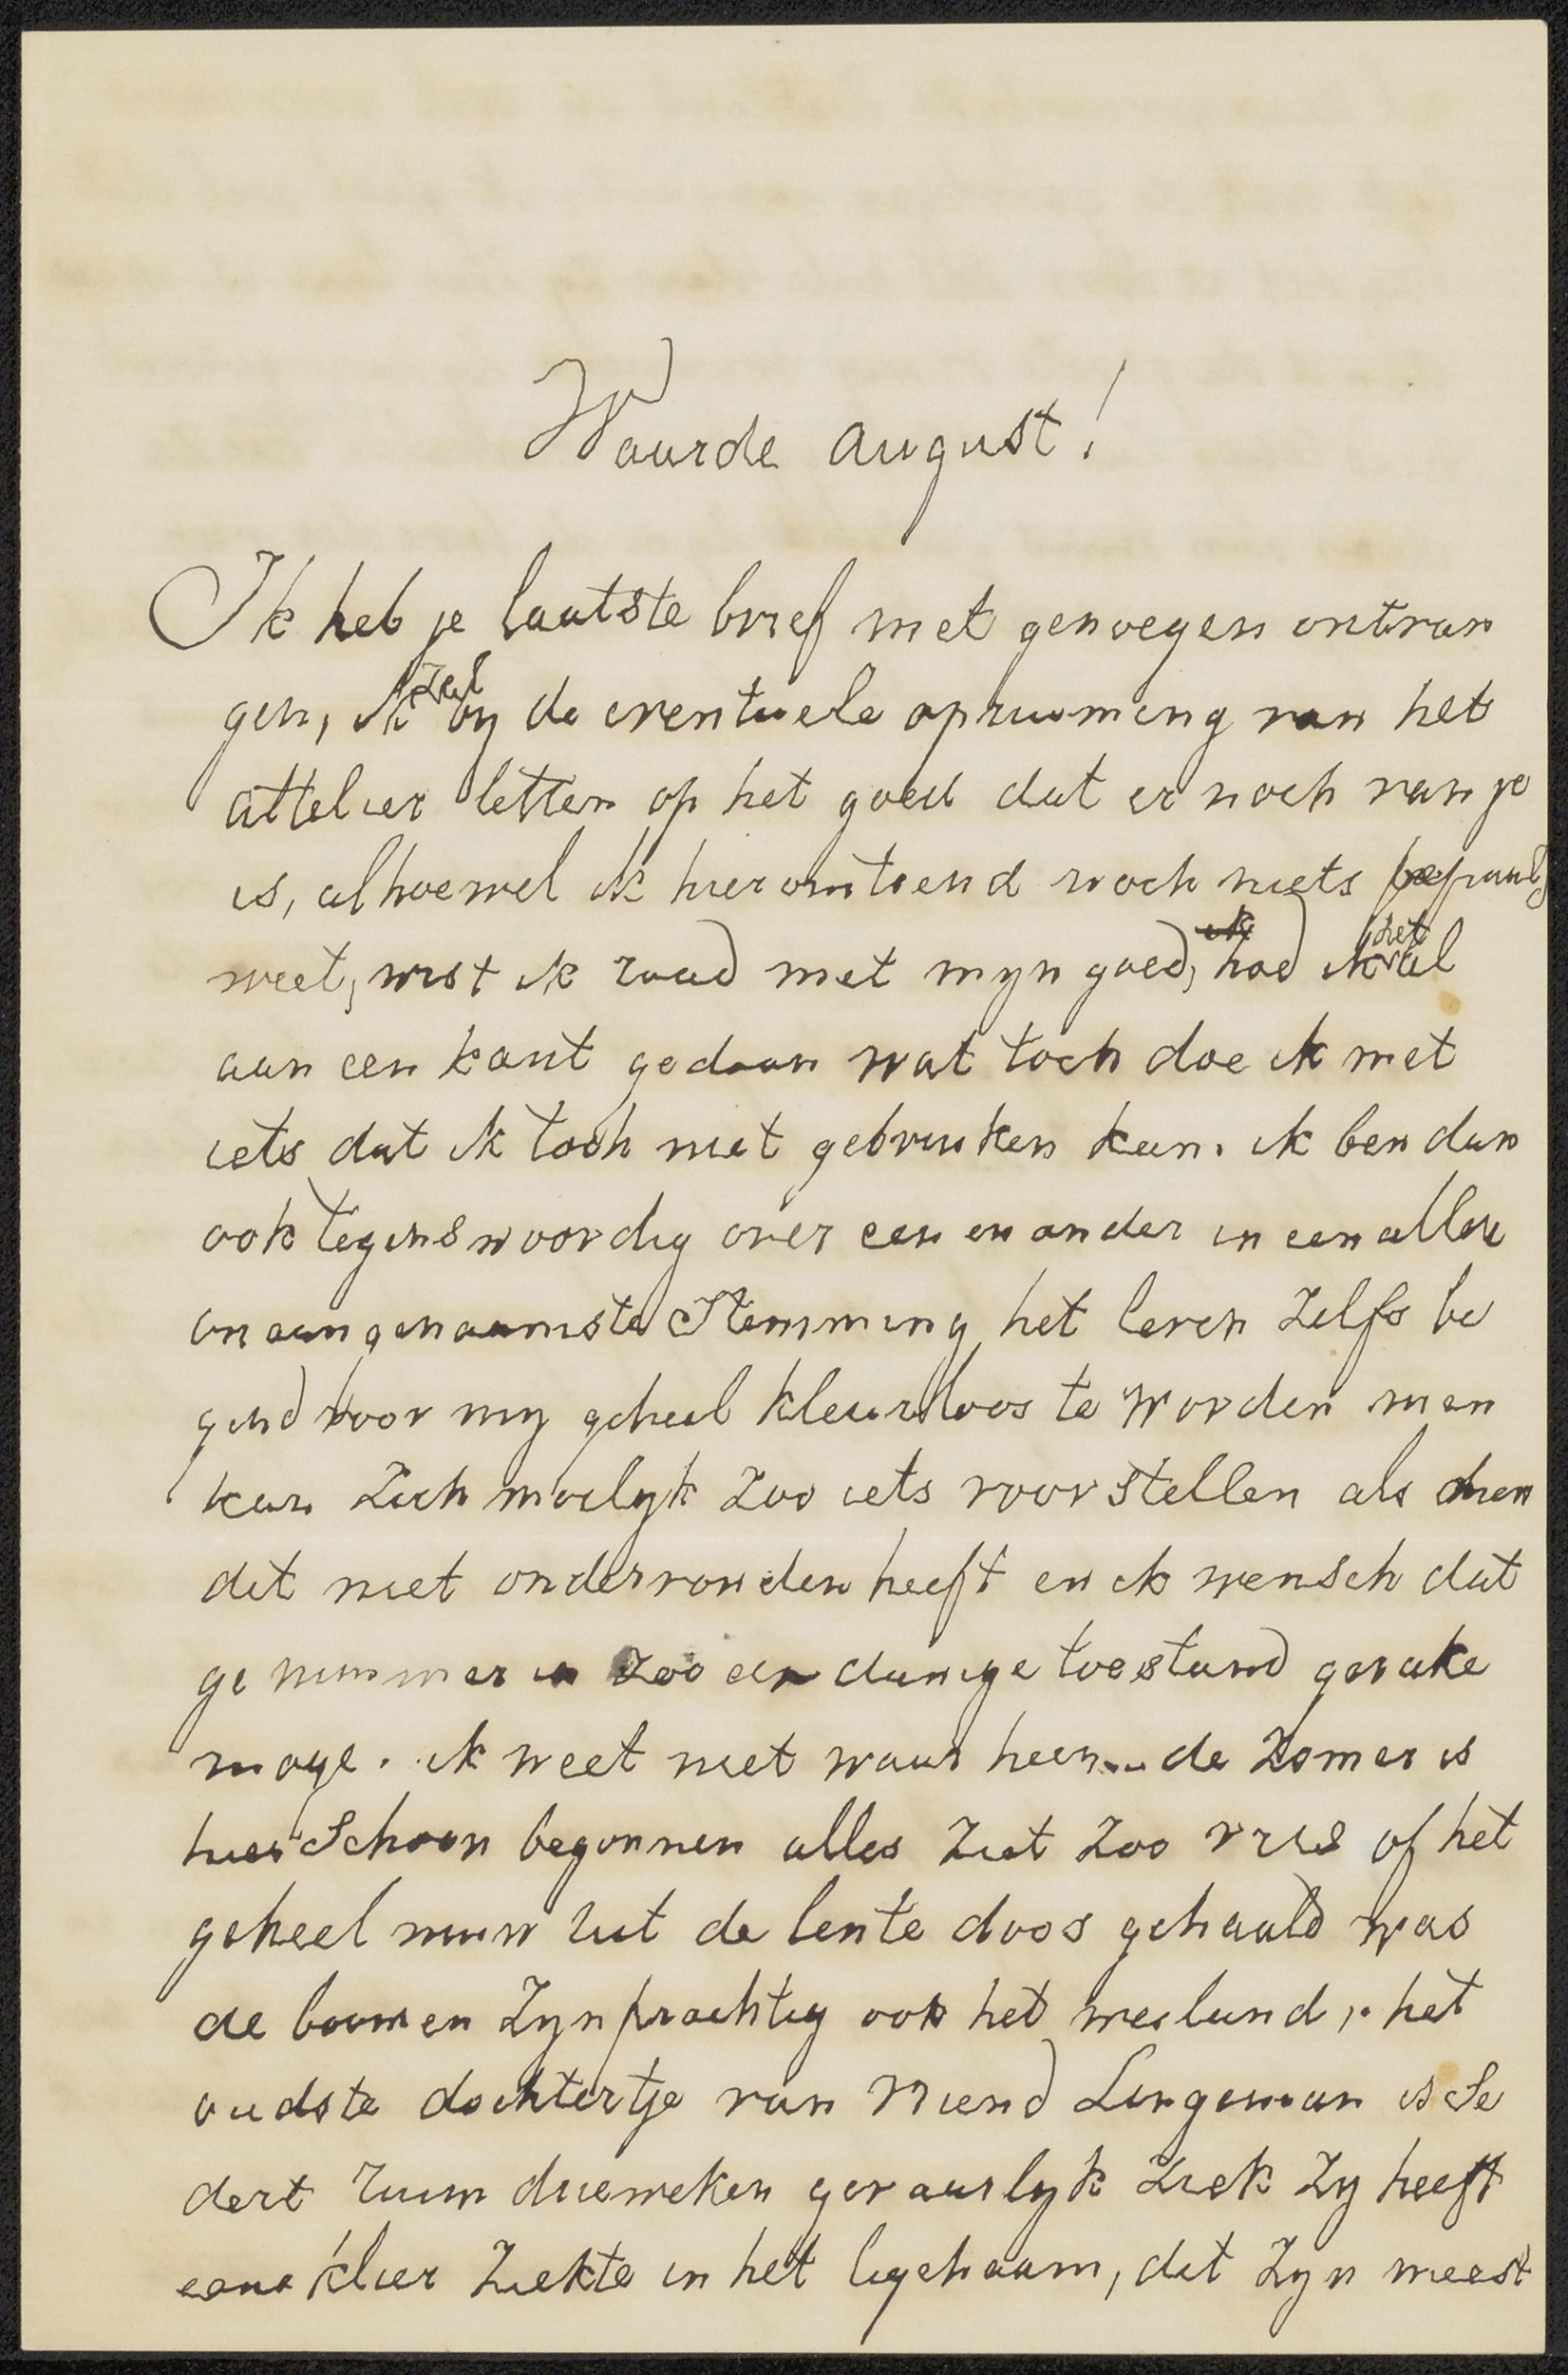 Waarde August!
Ik heb je laatste brief met genoegen ontvan
gen, ik zal by de eventuele opruiming van het
attelier letten op het goed dat er noch van je
is, alhoewel ik hieromtrend noch niets bepaalds
weet, wist ik raad met myn goed, had ik het al
aan een kant gedaan wat toch doe ik met
iets dat ik toch niet gebruiken kan. ik ben dan
ook tegenswoordig over een en ander in een aller
onaangenaamste Stemming het leven Zelfs be
gind voor my geheel kleurloos te worden men
kan Zich moelyk Zoo iets voorstellen als men
dit niet ondervonden heeft en ik wensch dat
ge nimmer in Zoo een danige toestand gerake
moge. ik weet niet waar heen... de Zomer is
hier Schoon begonnen alles Ziet Zoo vris of het
geheel nieuw uit de lente doos gehaald was
de boomen Zyn prachtig ook het weiland, het
oudste dochtertje van vriend Lingeman is Se
dert ruim drieweken gevaarlyk Ziek Zy heeft
eene klier Ziekte in het ligchaam, dit Zyn meest